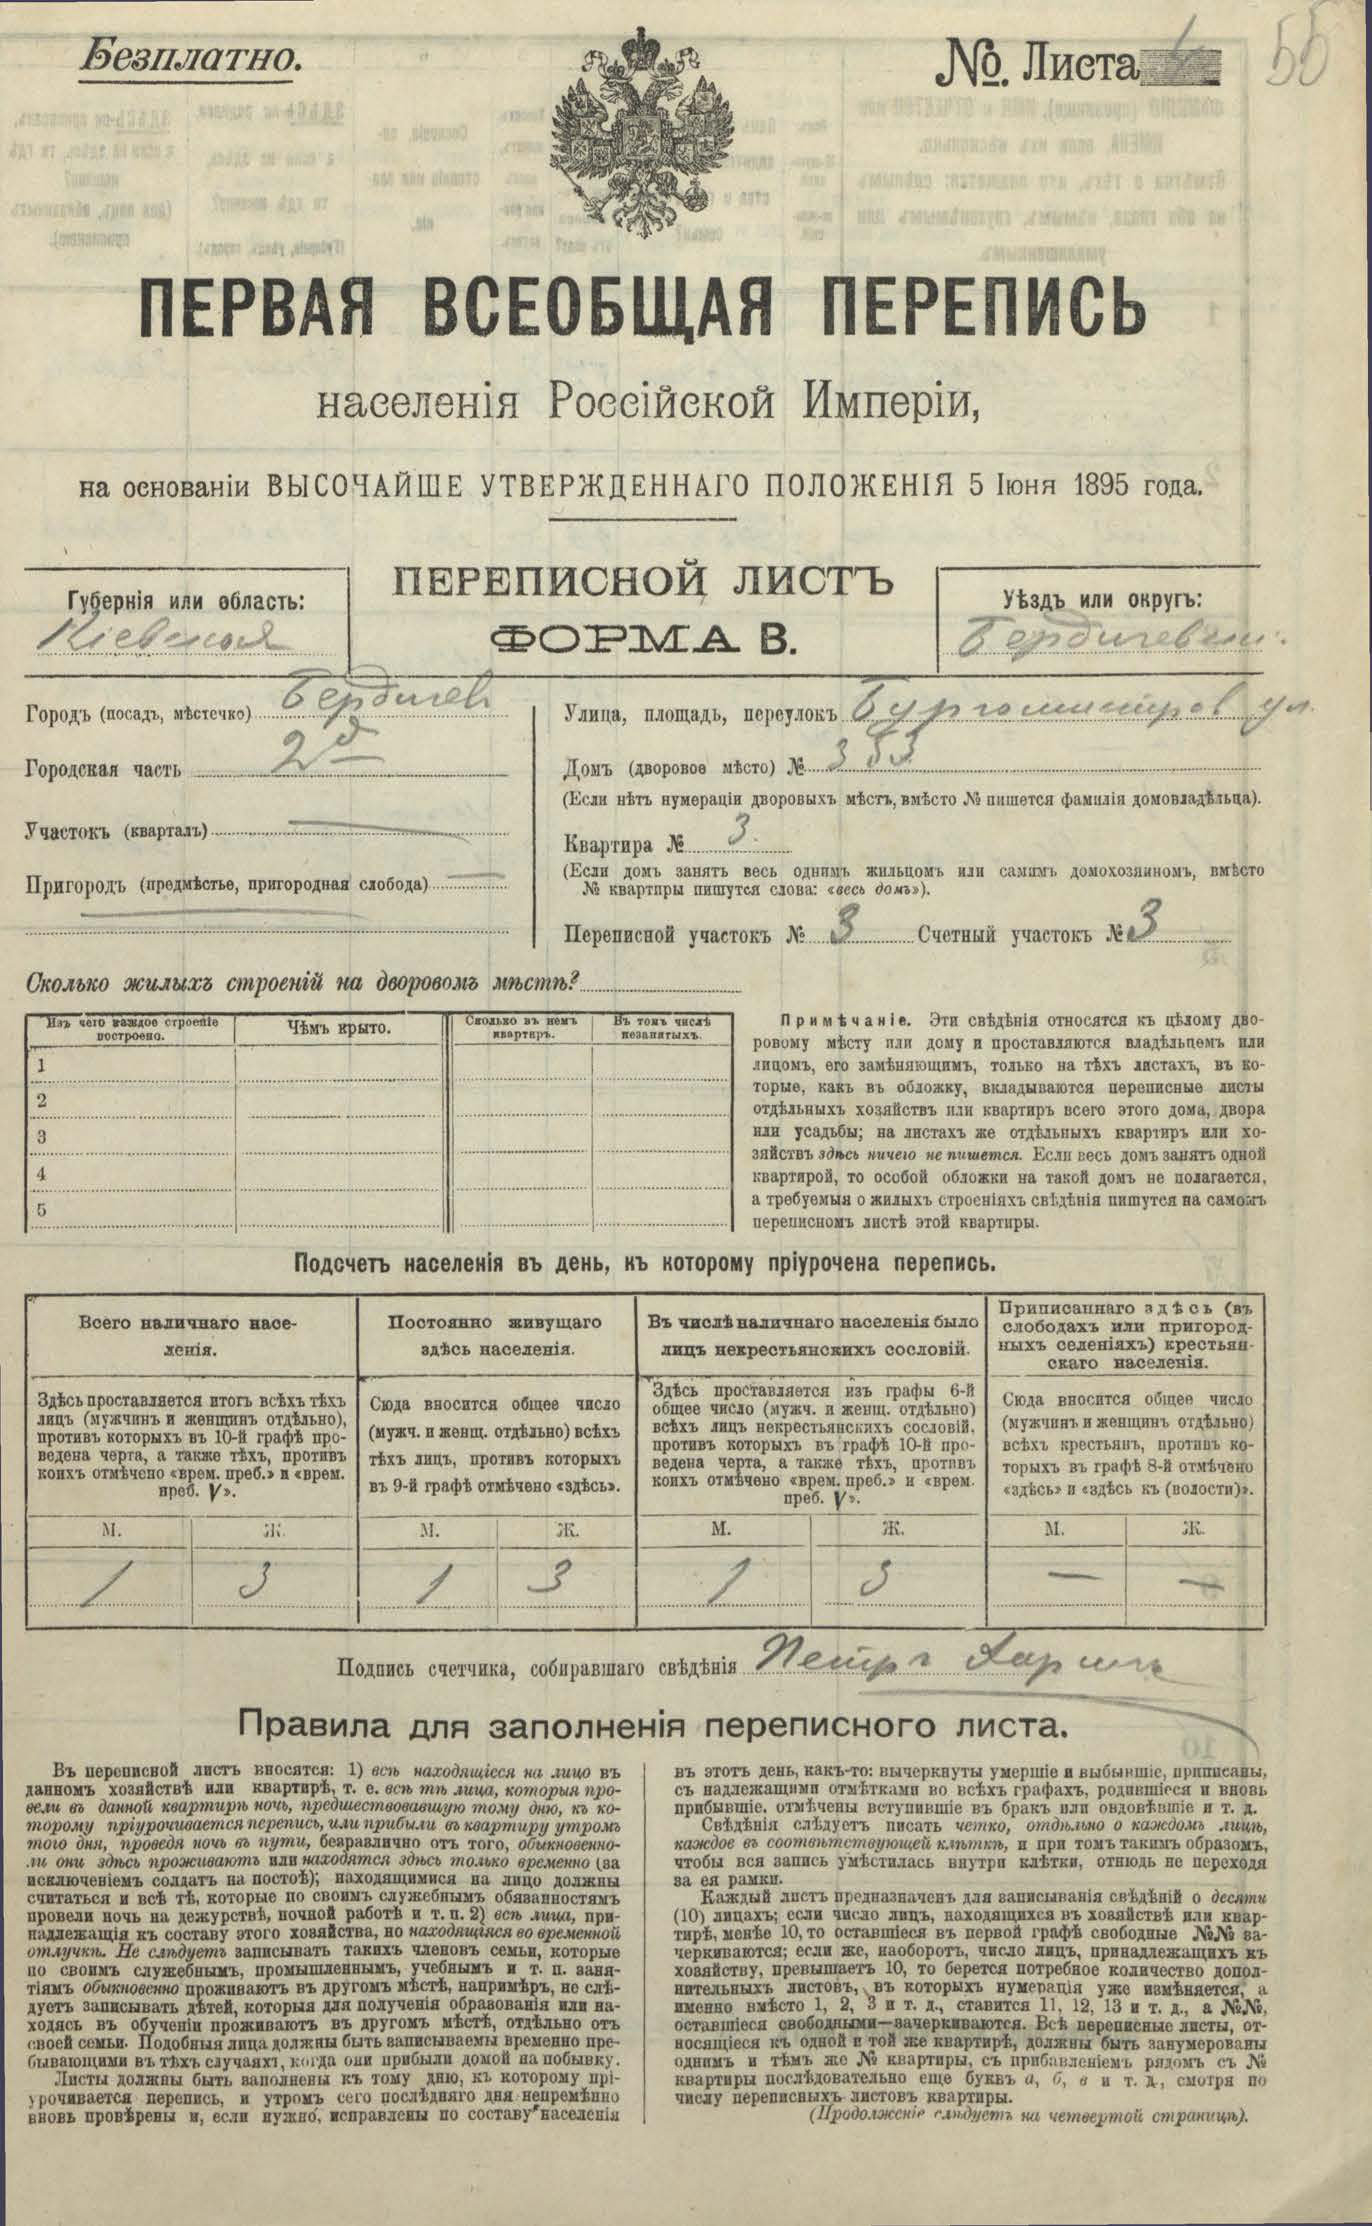 Безплатно.
№. Листа
55
ПЕРВАЯ ВСЕОБЩАЯ ПЕРЕПИСЬ
населенія Россійской Имперіи,
на основаніи ВЫСОЧАЙШЕ УТВЕРЖДЕННАГО ПОЛОЖЕНІЯ 5 Іюня 1895 года.
ПЕРЕПИСНОЙ ЛИСТЪ
ФОРМА В.
Губернія или область:
Кіевская
Уѣздъ или округъ:
Бердичевск.
Городъ (посадъ, мѣстечко) Бердичев
Городская часть 2я
Участокъ (кварталъ)
Пригородъ (предмѣстье, пригородная слобода)
Улица, площадь, переулокъ Бургомистров ул.
Домъ (дворовое мѣсто) № 353
(Если нѣтъ нумераціи дворовыхъ мѣстъ, вмѣсто № пишется фамилія домовладѣльца).
Квартира № 3.
(Если домъ занятъ весь однимъ жильцомъ или самимъ домохозяиномъ, вмѣсто
№ квартиры пишутся слова: «весь домъ»).
Переписной участокъ № 3 Счетный участокъ № 3
Сколько жилыхъ строеній на дворовомъ мѣстѣ?
Изъ чего каждое строеніе построено.
Чѣмъ крыто.
Сколько въ немъ квартиръ.
Въ томъ числѣ незанятыхъ.
1
2
3
4
5
Примѣчаніе. Эти свѣдѣнія относятся къ цѣлому дво-
ровому мѣсту или дому и проставляются владѣльцемъ или
лицомъ, его замѣняющимъ, только на тѣхъ листахъ, въ ко-
торые, какъ въ обложку, вкладываются переписные листы
отдѣльныхъ хозяйствъ или квартиръ всего этого дома, двора
или усадьбы; на листахъ же отдѣльныхъ квартиръ или хо-
зяйствъ здѣсь ничего не пишется. Если весь домъ занятъ одной
квартирой, то особой обложки на такой домъ не полагается,
а требуемыя о жилыхъ строеніяхъ свѣдѣнія пишутся на самомъ
переписномъ листѣ этой квартиры.
Подсчетъ населенія въ день, къ которому пріурочена перепись.
Всего наличнаго насе-
ленія.
Постоянно живущаго
здѣсь населенія.
Въ числѣ наличнаго населенія было
лицъ некрестьянскихъ сословій.
Приписаннаго здѣсь (въ
слободахъ или пригород-
ныхъ селеніяхъ) крестьян-
скаго населенія.
Здѣсь проставляется итогъ всѣхъ тѣхъ
лицъ (мужчинъ и женщинъ отдѣльно),
противъ которыхъ въ 10-й графѣ про-
ведена черта, а также тѣхъ, противъ
коихъ отмѣчено «врем. преб.» и «врем.
преб. V».
Сюда вносится общее число
(мужч. и женщ. отдѣльно) всѣхъ
тѣхъ лицъ, противъ которыхъ
въ 9-й графѣ отмѣчено «здѣсь».
Здѣсь проставляется изъ графы 6-й
общее число (мужч. и женщ. отдѣльно)
всѣхъ лицъ некрестьянскихъ сословій,
противъ которыхъ въ графѣ 10-й про-
ведена черта, а также тѣхъ, противъ
коихъ отмѣчено «врем. преб.» и «врем.
преб. V».
Сюда вносится общее число
(мужчинъ и женщинъ отдѣльно)
всѣхъ крестьянъ, противъ ко-
торыхъ въ графѣ 8-й отмѣчено
«здѣсь» и «здѣсь къ (волости)».
М. Ж. М. Ж. М. Ж. М. Ж.
1 3 1 3 1 3 — —
Подпись счетчика, собиравшаго свѣдѣнія Петръ
Правила для заполненія переписного листа.
Въ переписной листъ вносятся: 1) всѣ находящіеся на лицо въ
данномъ хозяйствѣ или квартирѣ, т. е. всѣ тѣ лица, которыя про-
вели въ данной квартирѣ ночь, предшествовавшую тому дню, къ ко-
торому пріурочивается перепись, или прибыли въ квартиру утромъ
того дня, проведя ночь въ пути, безразлично отъ того, обыкновенно-
ли они здѣсь проживаютъ или находятся здѣсь только временно (за
исключеніемъ солдатъ на постоѣ); находящимися на лицо должны
считаться и всѣ тѣ, которые по своимъ служебнымъ обязанностямъ
провели ночь на дежурствѣ, ночной работѣ и т. п. 2) всѣ лица, при-
надлежащія къ составу этого хозяйства, но находящіяся во временной
отлучкѣ. Не слѣдуетъ записывать такихъ членовъ семьи, которые
по своимъ служебнымъ, промышленнымъ, учебнымъ и т. п. заня-
тіямъ обыкновенно проживаютъ въ другомъ мѣстѣ, напримѣръ, не слѣ-
дуетъ записывать дѣтей, которыя для полученія образованія или на-
ходясь въ обученіи проживаютъ въ другомъ мѣстѣ, отдѣльно отъ
своей семьи. Подобныя лица должны быть записываемы временно пре-
бывающими въ тѣхъ случаяхъ, когда они прибыли домой на побывку.
Листы должны быть заполнены къ тому дню, къ которому прі-
урочивается перепись, и утромъ сего послѣдняго дня непремѣнно
вновь провѣрены и, если нужно, исправлены по составу населенія
въ этотъ день, какъ-то: вычеркнуты умершіе и выбывшіе, приписаны,
съ надлежащими отмѣтками во всѣхъ графахъ, родившіеся и вновь
прибывшіе, отмѣчены вступившіе въ бракъ или овдовѣвшіе и т. д.
Свѣдѣнія слѣдуетъ писать четко, отдѣльно о каждомъ лицѣ,
каждое въ соотвѣтствующей клѣткѣ, и при томъ такимъ образомъ,
чтобы вся запись умѣстилась внутри клѣтки, отнюдь не переходя
за ея рамки.
Каждый листъ предназначенъ для записыванія свѣдѣній о десяти
(10) лицахъ; если число лицъ, находящихся въ хозяйствѣ или квар-
тирѣ, менѣе 10, то оставшіеся въ первой графѣ свободные №№ за-
черкиваются; если же, наоборотъ, число лицъ, принадлежащихъ къ
хозяйству, превышаетъ 10, то берется потребное количество допол-
нительныхъ листовъ, въ которыхъ нумерація уже измѣняется, а
именно вмѣсто 1, 2, 3 и т. д., ставится 11, 12, 13 и т. д., а №№,
оставшіеся свободными—зачеркиваются. Всѣ переписные листы, от-
носящіеся къ одной и той же квартирѣ, должны быть занумерованы
однимъ и тѣмъ же № квартиры, съ прибавленіемъ рядомъ съ №
квартиры послѣдовательно еще буквъ а, б, в и т. д., смотря по
числу переписныхъ листовъ квартиры.
(Продолженіе слѣдуетъ на четвертой страницѣ).